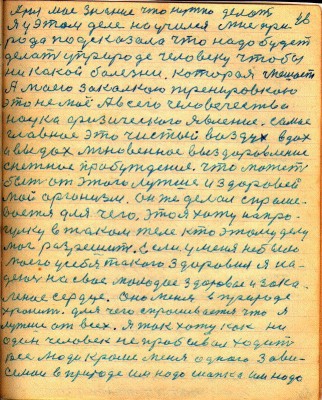 Яни мое знание что нужно делать
Я у этом деле научился мне при-
рода подсказала что надо будет
делать у природе человеку чтобы
никакой болезни. которая мешает
А моего закалкою тренировкою
это не мой А всего человечества
наука физического явление. самое
главное это чистый воздух вдох
и выдох мгновенное выздоровление
снежное пробуждение. что может
быть от этого лучше и здоровей
мой организм. он же делал спраши-
вается для чего. это я хожу на про-
гулку в таком теле кто этому делу
мог разрешит. Если у меня не было
моего у себя такого здоровия я на-
деюся на свое молодое здоровое и зака-
леное сердце. Оно меня в природе
хронит. для чего спрашивается что я
лутше от всех. Я так хожу как ни
один человек не пробывал ходить
все люди кроме меня одного Зави-
семые в природе им надо шапка им надо